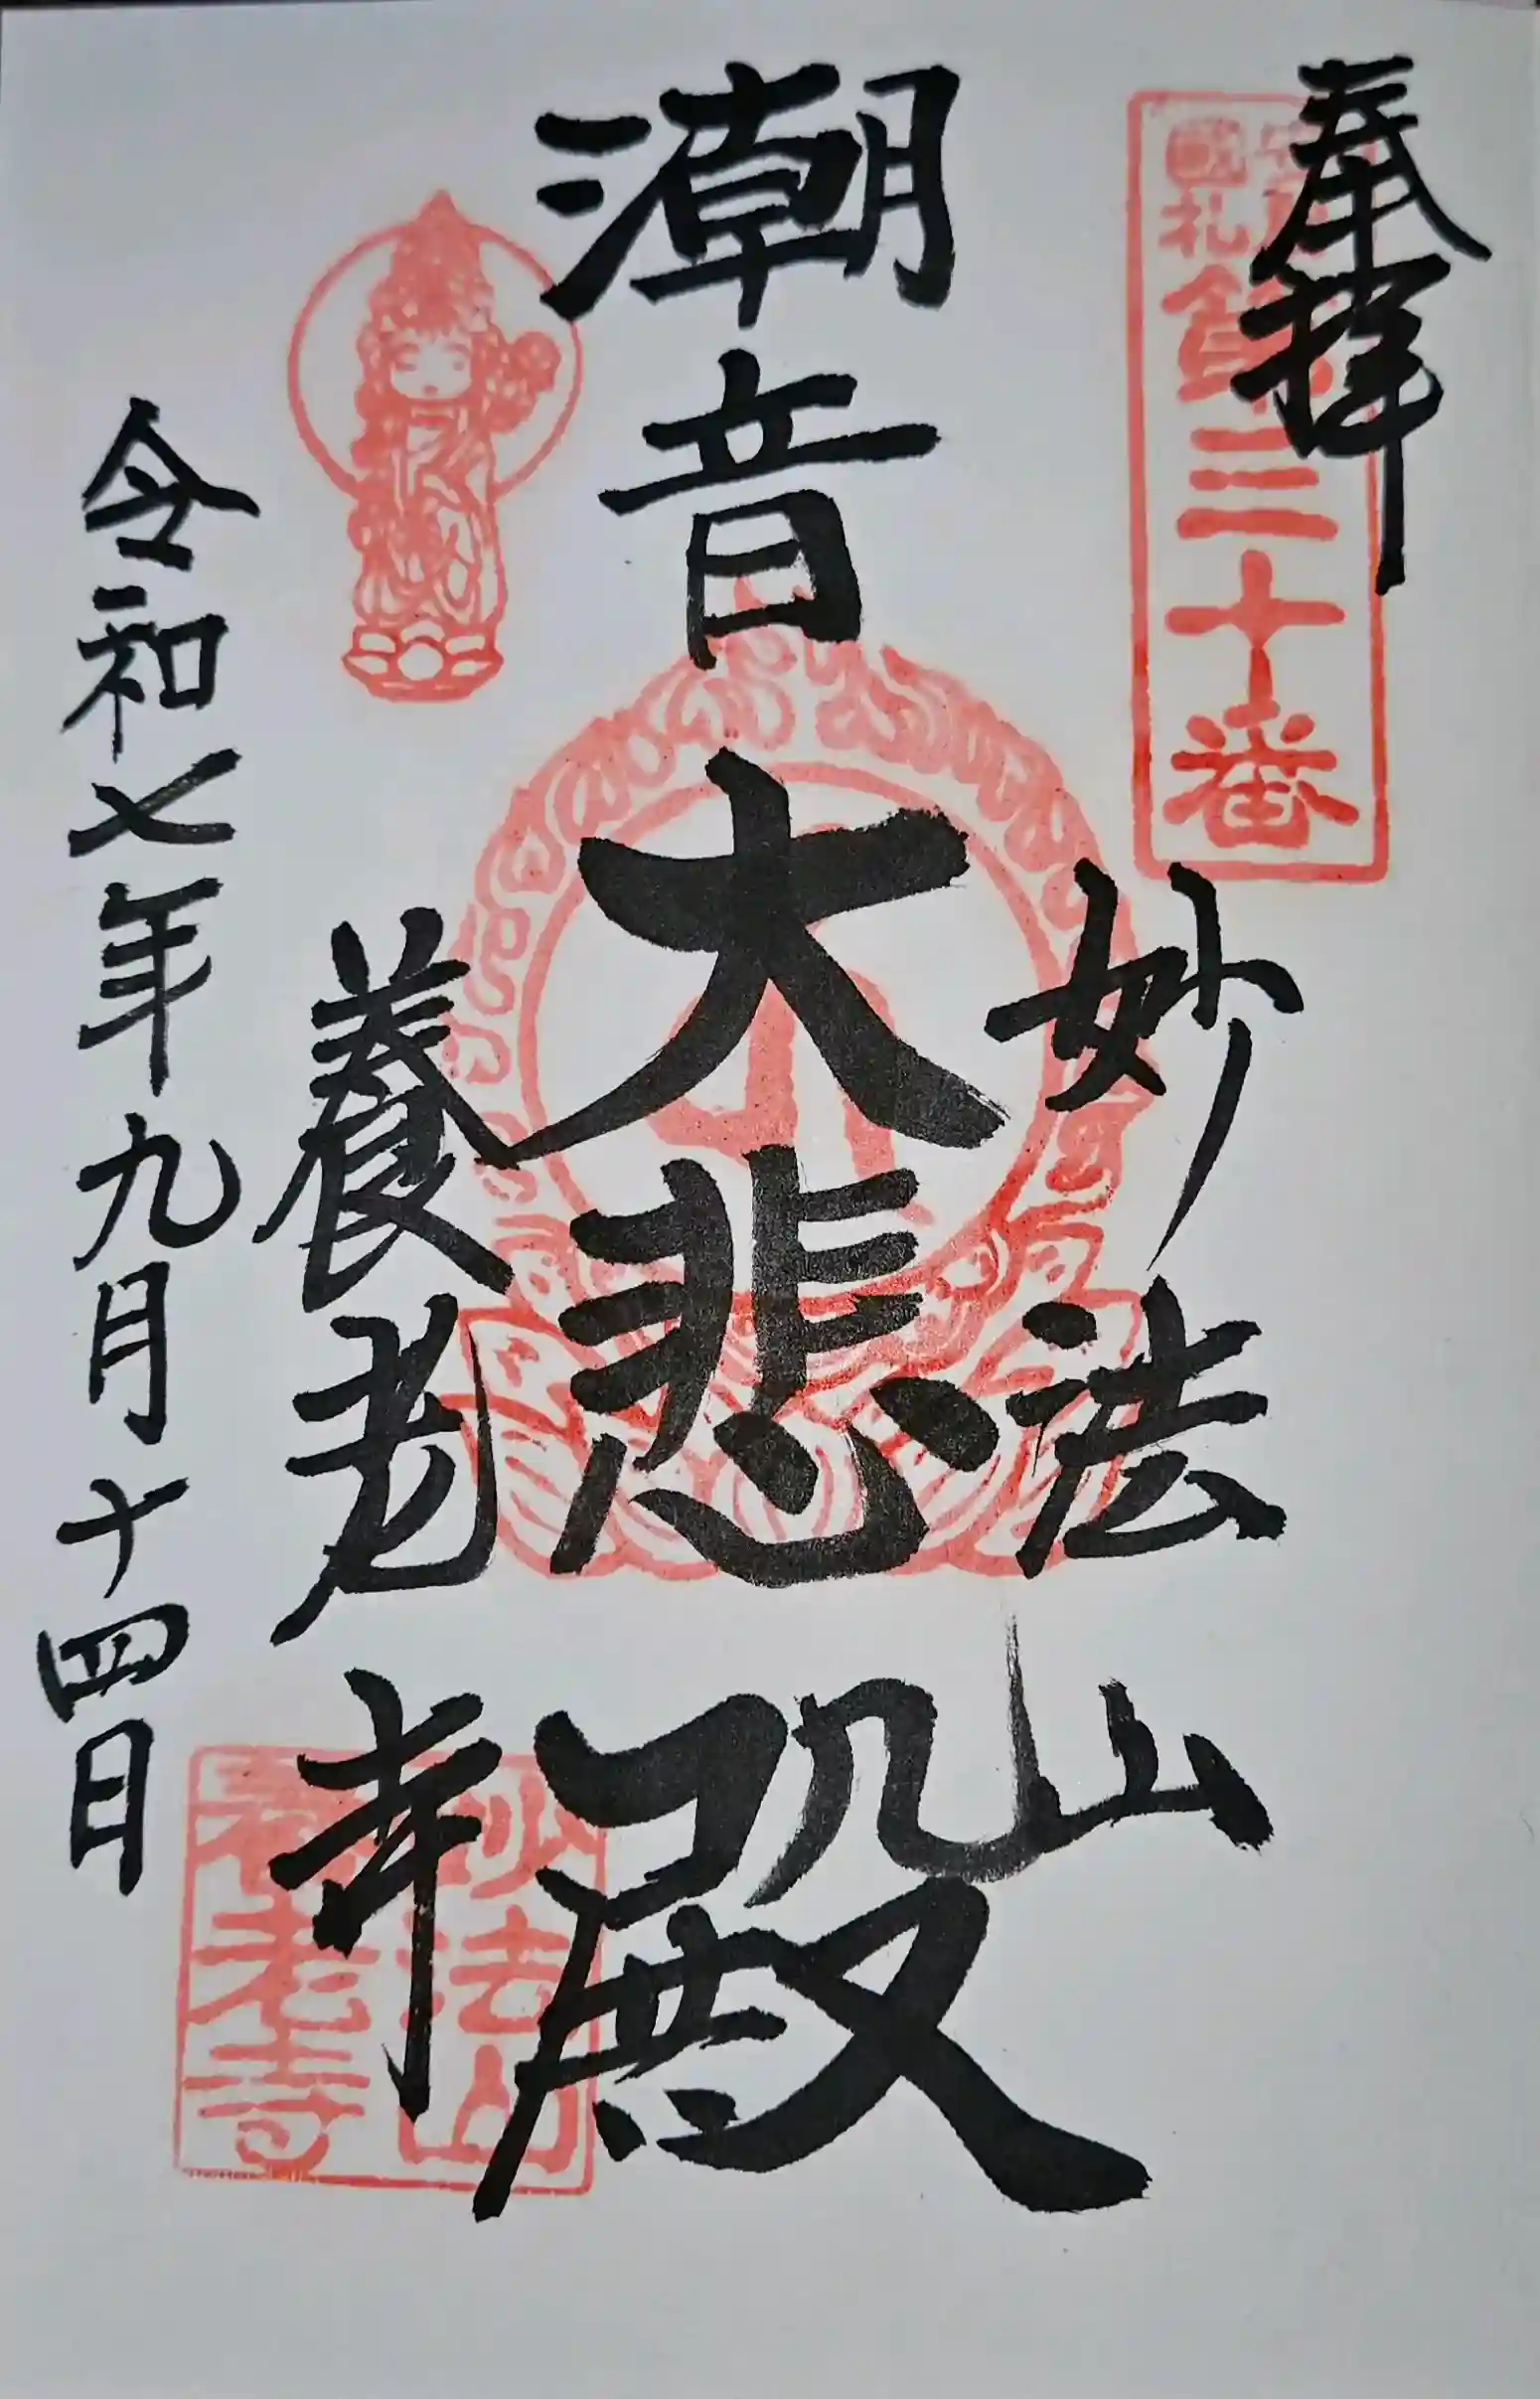 奉拝
國札
第三十番
潮音
大悲殿
妙法山
養老寺
令和七年九月十四日
妙法山
養老寺